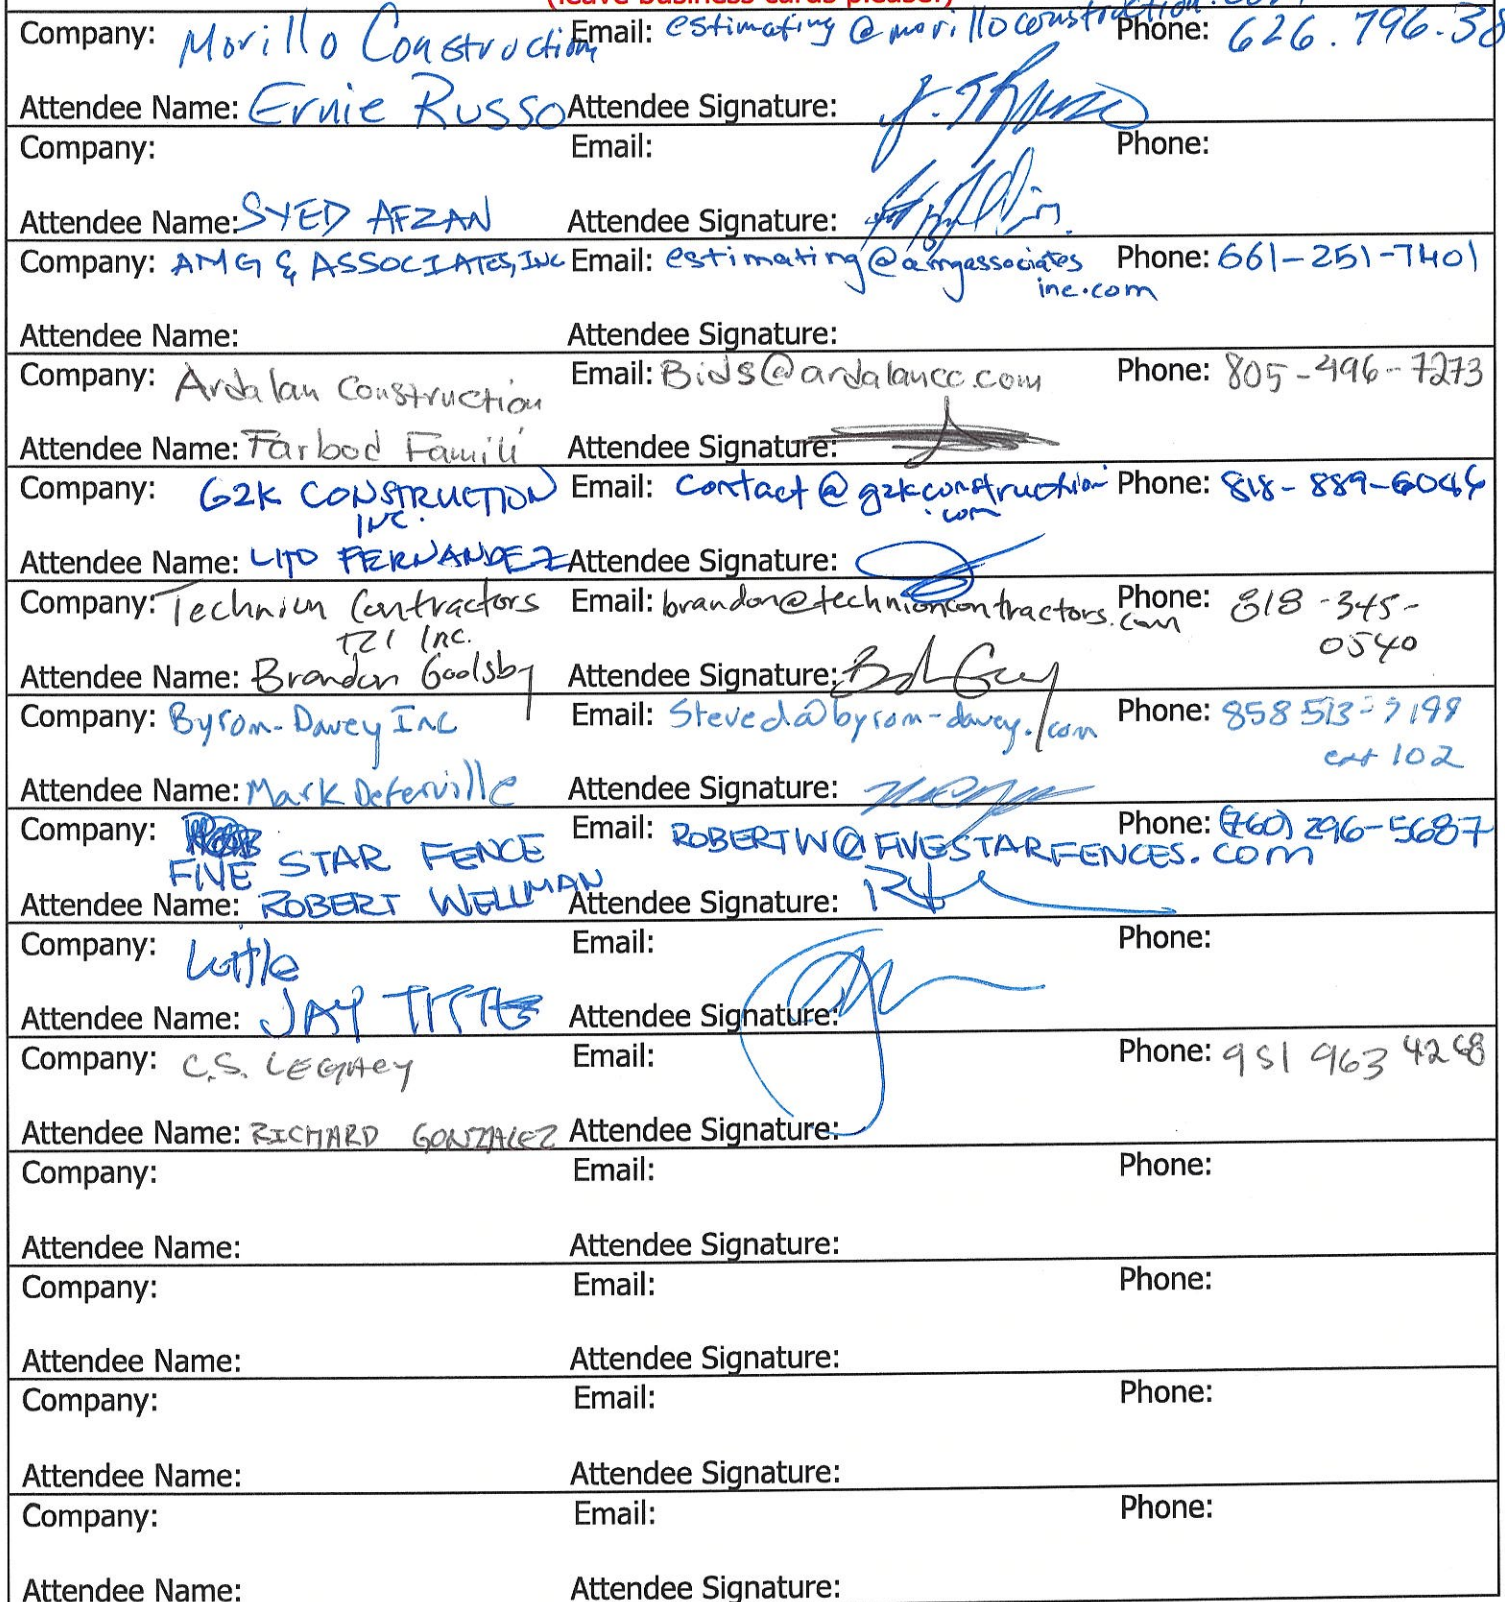 (leave business cards please!)
Company: Morillo Construction Email: estimating@morilloconstruction.com Phone: 626.796.38
Attendee Name: Ernie Russo Attendee Signature:
Company: Email: Phone:
Attendee Name: SYED AFZAN Attendee Signature:
Company: AMG & ASSOCIATES, INC Email: estimating@amgassociates Phone: 661-251-7401
inc.com
Attendee Name: Attendee Signature:
Company: Ardalan Construction Email: Bids@ardalancc.com Phone: 805-496-7273
Attendee Name: Farbod Famili Attendee Signature:
Company: G2K CONSTRUCTION Email: Contact@g2kconstruction Phone: 818-889-6046
INC. .com
Attendee Name: LITO FERNANDEZ Attendee Signature:
Company: Technion Contractors Email: brandon@technioncontractors.com Phone: 818-345-
TZI Inc. 0540
Attendee Name: Brandon Goolsby Attendee Signature:
Company: Byrom-Davey Inc Email: Steved@byrom-davey.com Phone: 858 513-7199
ext 102
Attendee Name: Mark Deterville Attendee Signature:
Company: Email: ROBERTW@FIVESTARFENCES.COM Phone: (760) 296-5687
FIVE STAR FENCE
Attendee Name: ROBERT WELLMAN Attendee Signature:
Company: Email: Phone:
Attendee Name: JAY Attendee Signature:
Company: C.S. LEGACY Email: Phone: 951 963 4268
Attendee Name: RICHARD GONZALEZ Attendee Signature:
Company: Email: Phone:
Attendee Name: Attendee Signature:
Company: Email: Phone:
Attendee Name: Attendee Signature:
Company: Email: Phone:
Attendee Name: Attendee Signature:
Company: Email: Phone:
Attendee Name: Attendee Signature: